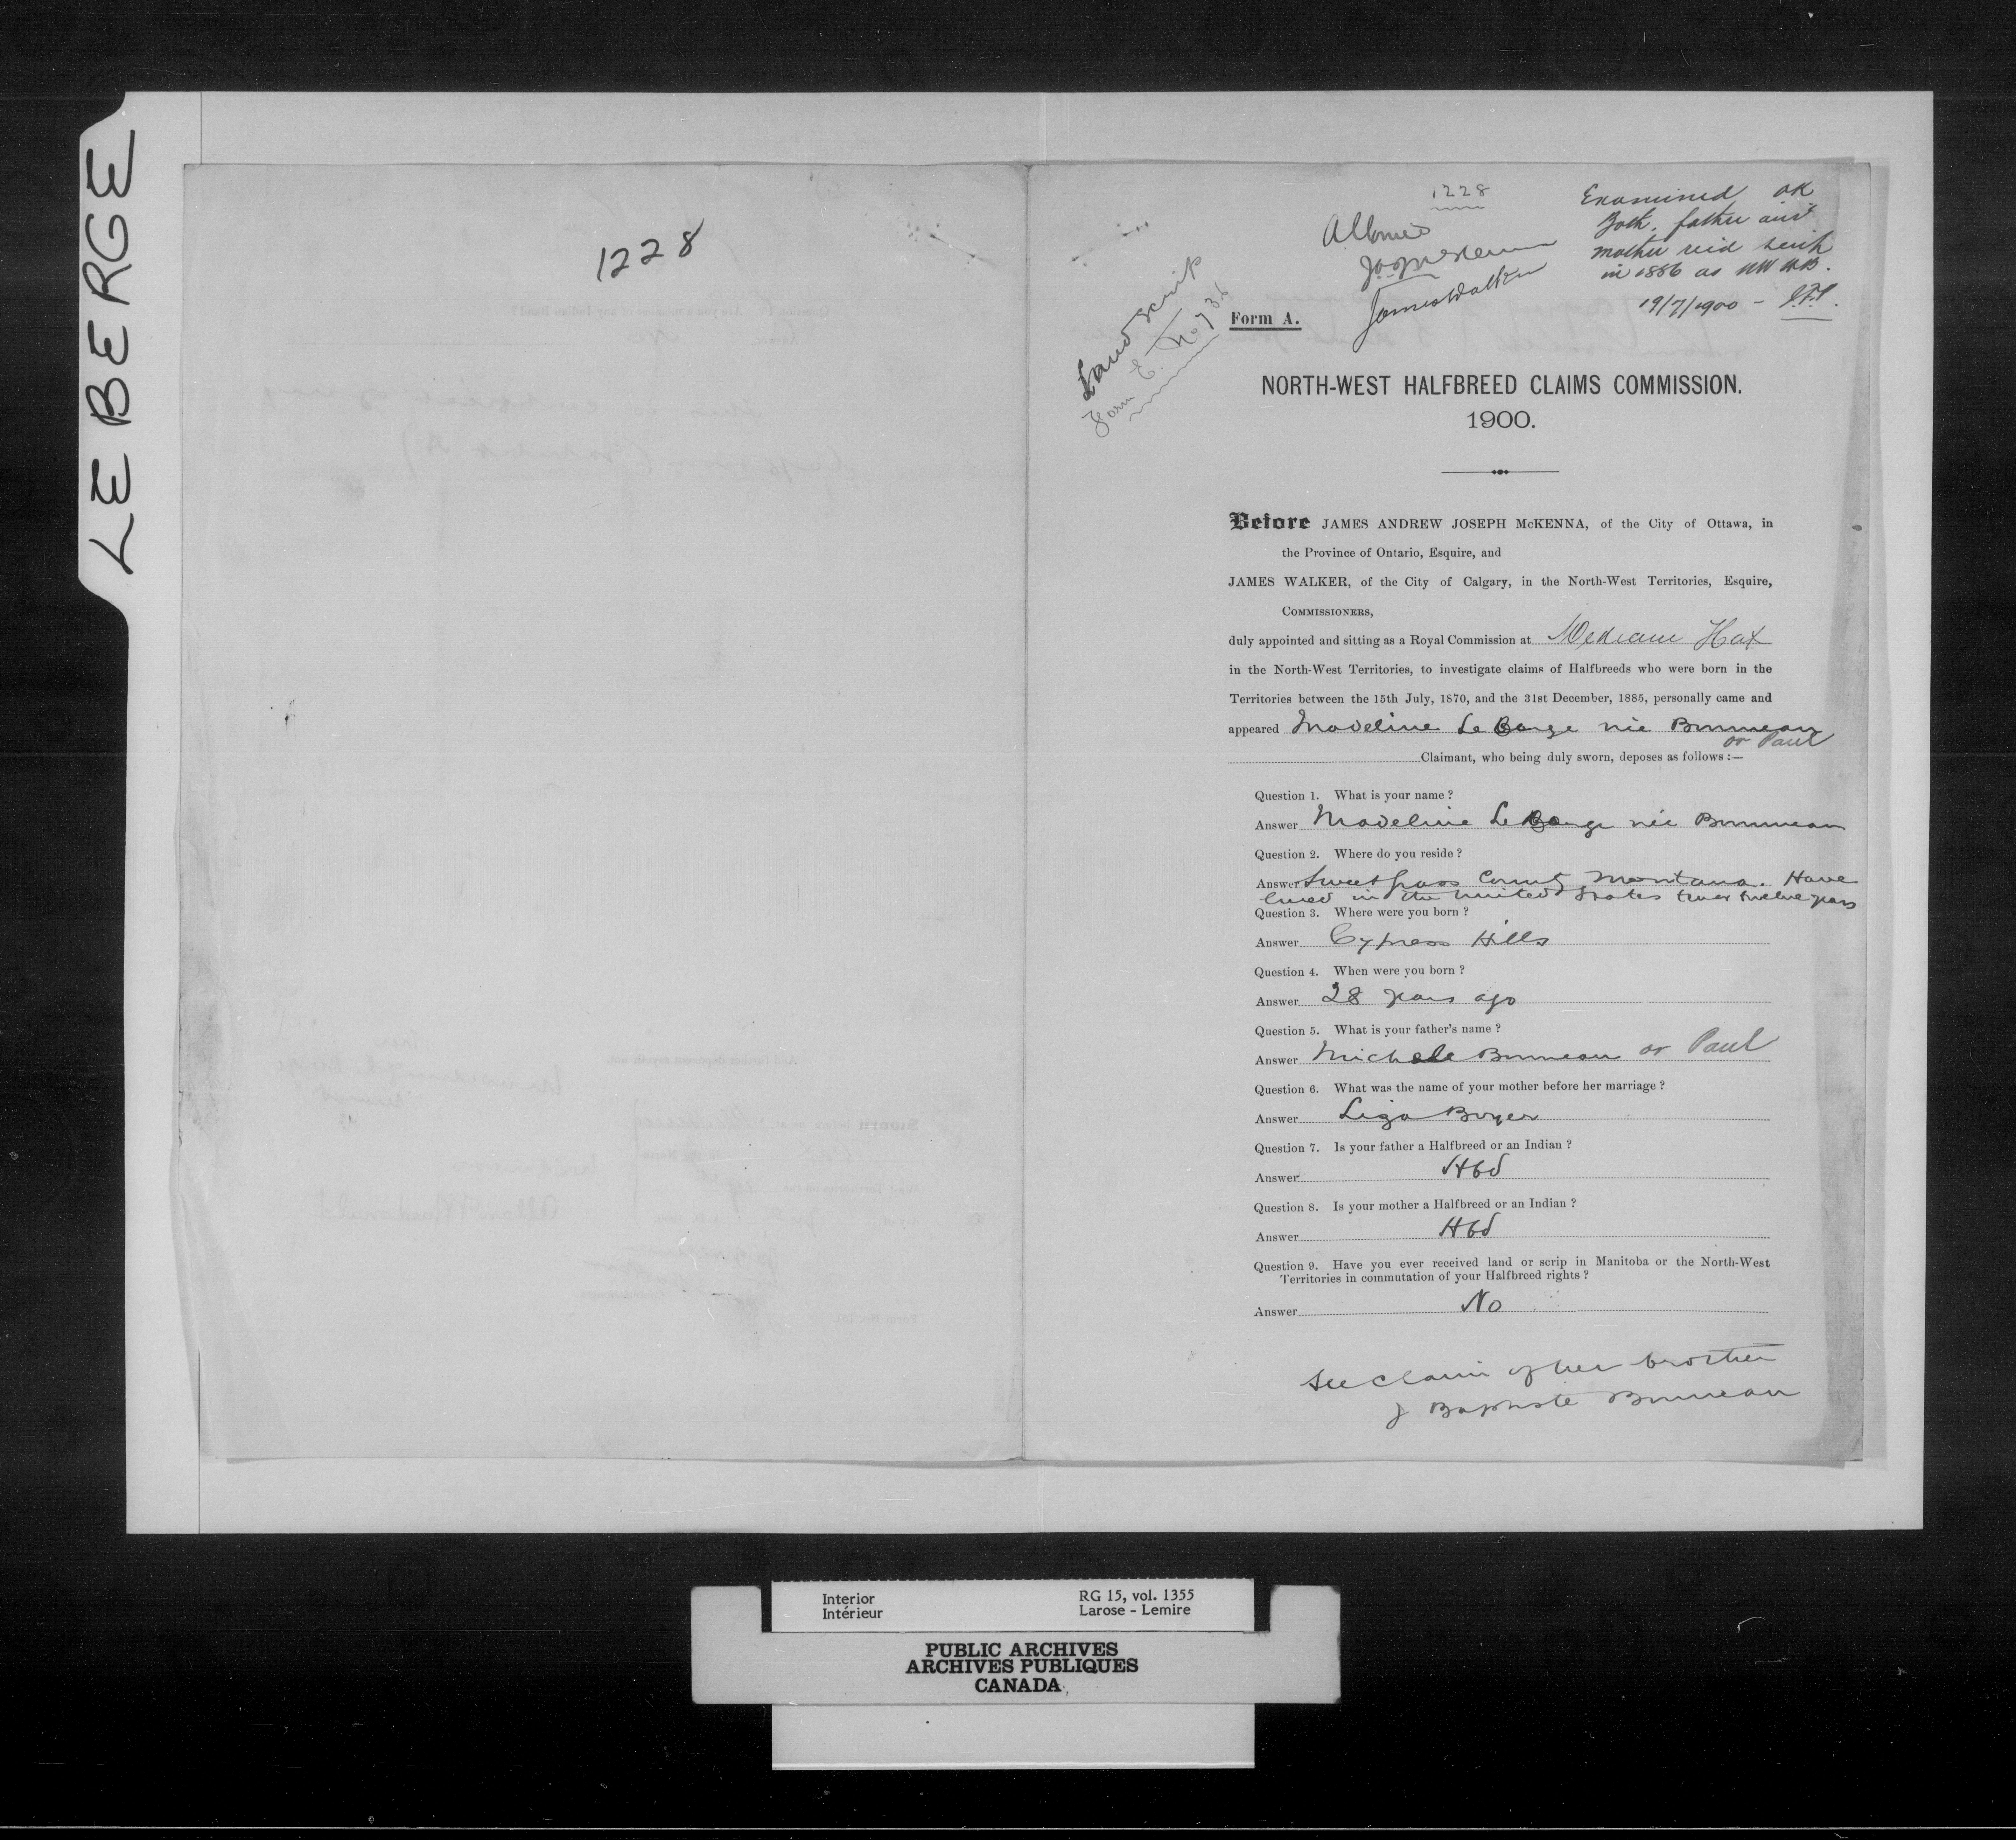 LE BERGE
1228
1228
Allowed
JAJ McKenna
James Walker
Examined OK
Both father and
mother recd scrip
in 1886 as NW HB.
19/7/1900 -
Land scrip
Form E. No 736
Form A.
NORTH-WEST HALFBREED CLAIMS COMMISSION.
1900.
Before JAMES ANDREW JOSEPH McKENNA, of the City of Ottawa, in
the Province of Ontario, Esquire, and
JAMES WALKER, of the City of Calgary, in the North-West Territories, Esquire,
COMMISSIONERS,
duly appointed and sitting as a Royal Commission at Medicine Hat
in the North-West Territories, to investigate claims of Halfbreeds who were born in the
Territories between the 15th July, 1870, and the 31st December, 1885, personally came and
appeared Madeline Le Barge née Bruneau
or Paul
Claimant, who being duly sworn, deposes as follows :—
Question 1. What is your name ?
Answer Madeline Le Barge née Bruneau
Question 2. Where do you reside ?
Answer Sweet grass County Montana. Have
lived in the United States twelve years
Question 3. Where were you born ?
Answer Cypress Hills
Question 4. When were you born ?
Answer 28 years ago
Question 5. What is your father's name ?
Answer Michele Bruneau or Paul
Question 6. What was the name of your mother before her marriage ?
Answer Liza Boyer
Question 7. Is your father a Halfbreed or an Indian ?
Answer Hbd
Question 8. Is your mother a Halfbreed or an Indian ?
Answer Hbd
Question 9. Have you ever received land or scrip in Manitoba or the North-West
Territories in commutation of your Halfbreed rights ?
Answer No
See claim of her brother
J Baptiste Bruneau
Interior
Intérieur
RG 15, vol. 1355
Larose - Lemire
PUBLIC ARCHIVES
ARCHIVES PUBLIQUES
CANADA